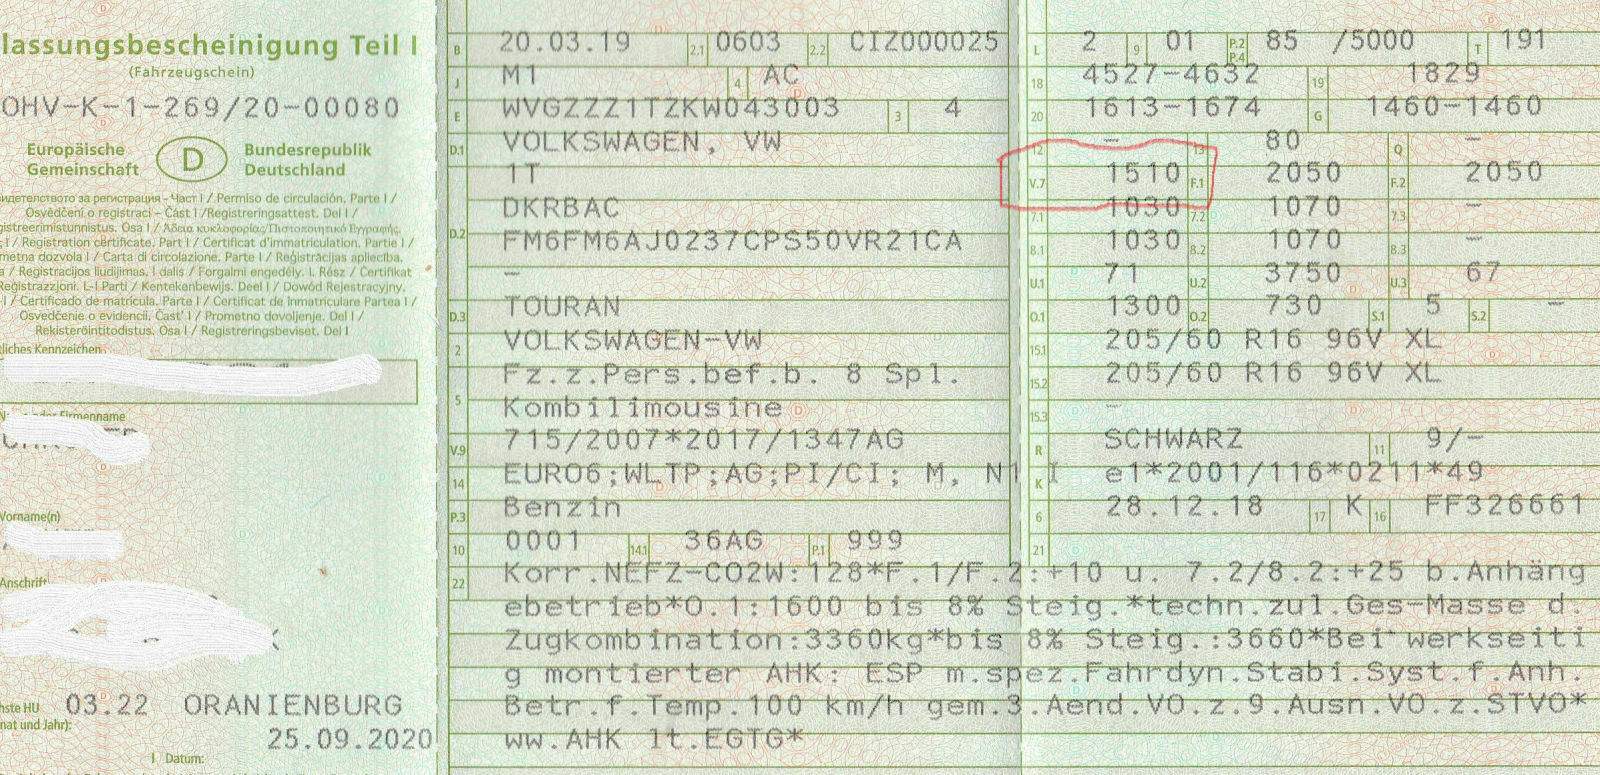 lassungsbescheinigung Teil I
(Fahrzeugschein)
OHV-K-1-269/20-00080
Europäische Gemeinschaft
D
Bundesrepublik Deutschland
идетелството за регистрация - Част I / Permiso de circulación. Parte I /
Osvědčení o registraci – Část I /Registreringsattest. Del I /
gistreerimistunnistus. Osa I / Άδεια κυκλοφορίας/Πιστοποιητικό Εγγραφής.
I / Registration certificate. Part I / Certificat d'immatriculation. Partie I /
metna dozvola I / Carta di circolazione. Parte I / Reģistrācijas apliecība.
a / Registracijos liudijimas. I dalis / Forgalmi engedély. I. Rész / Ċertifikat
Reġistrazzjoni. L-I Parti / Kentekenbewijs. Deel I / Dowód Rejestracyjny.
I / Certificado de matrícula. Parte I / Certificat de înmatriculare Partea I /
Osvedčenie o evidencii. Časť I / Prometno dovoljenje. Del I /
Rekisteröintitodistus. Osa I / Registreringsbeviset. Del I
tliches Kennzeichen
der Firmenname
Vorname(n)
Anschrift
hste HU
nat und Jahr):
03.22 ORANIENBURG
25.09.2020
I Datum:
B 20.03.19 2.1 0603 2.2 CIZ000025
J M1 4 AC
E WVGZZZ1TZKW043003 3 4
D.1 VOLKSWAGEN, VW
1T
D.2 DKRBAC
FM6FM6AJ0237CPS50VR21CA
–
D.3 TOURAN
2 VOLKSWAGEN-VW
5 Fz.z.Pers.bef.b. 8 Spl.
Kombilimousine
V.9 715/2007*2017/1347AG
14 EURO6;WLTP;AG;PI/CI; M, N1 I
P.3 Benzin
10 0001 14.1 36AG P.1 999
L 2 9 01 P.2 P.4 85 /5000 T 191
18 4527-4632 19 1829
20 1613-1674 G 1460-1460
12 – 13 80 Q –
V.7 1510 F.1 2050 F.2 2050
7.1 1030 7.2 1070 7.3 –
8.1 1030 8.2 1070 8.3 –
U.1 71 U.2 3750 U.3 67
O.1 1300 O.2 730 S.1 5 S.2 –
15.1 205/60 R16 96V XL
15.2 205/60 R16 96V XL
15.3 –
R SCHWARZ 11 9/-
K e1*2001/116*0211*49
6 28.12.18 17 K 16 FF326661
21
22 Korr.NEFZ-CO2W:128*F.1/F.2:+10 u. 7.2/8.2:+25 b.Anhäng
ebetrieb*O.1:1600 bis 8% Steig.*techn.zul.Ges-Masse d.
Zugkombination:3360kg*bis 8% Steig.:3660*Bei werkseiti
g montierter AHK: ESP m.spez.Fahrdyn.Stabi.Syst.f.Anh.
Betr.f.Temp.100 km/h gem.3.Aend.VO.z.9.Ausn.VO.z.STVO*
ww.AHK lt.EGTG*